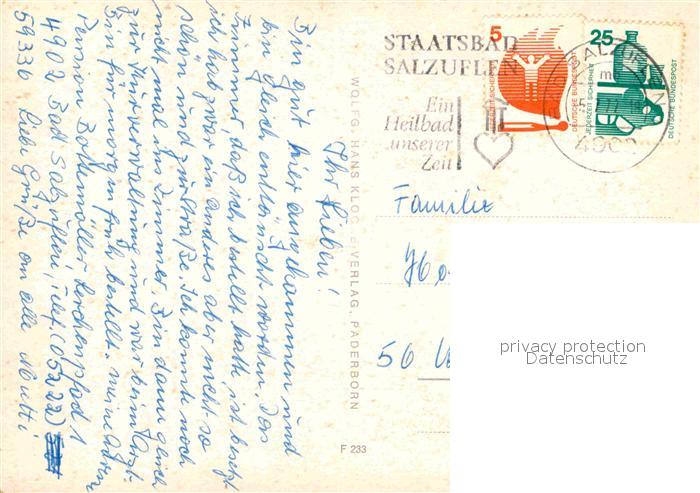 Ihr Lieben!
Bin gut hier angekommen und
bin gleich enttäuscht worden. Das
Zimmer daß ich bestellt hatte, ist besetzt
ich hab zwar ein anderes aber nicht so
schön und zur Straße. Ich konnte noch
nicht mal ins Zimmer. Bin dann gleich
zur Kurverwaltung und war beim Arzt.
Bin für morgen früh bestellt. meine Adresse
Pension Lerchenpfad 1
4902 Bad Salzuflen, Telef. (05222)
59336 Liebe Grüße an alle Mutti
WOLFG. HANS KLOCKE VERLAG, PADERBORN
F 233
STAATSBAD
SALZUFLEN
Ein
Heilbad
unserer
Zeit
5
JEDERZEIT SICHERHEIT
DEUTSCHE BUNDESPOST
25
JEDERZEIT SICHERHEIT
DEUTSCHE BUNDESPOST
BAD SALZUFLEN
4902
Familie
56
privacy protection
Datenschutz